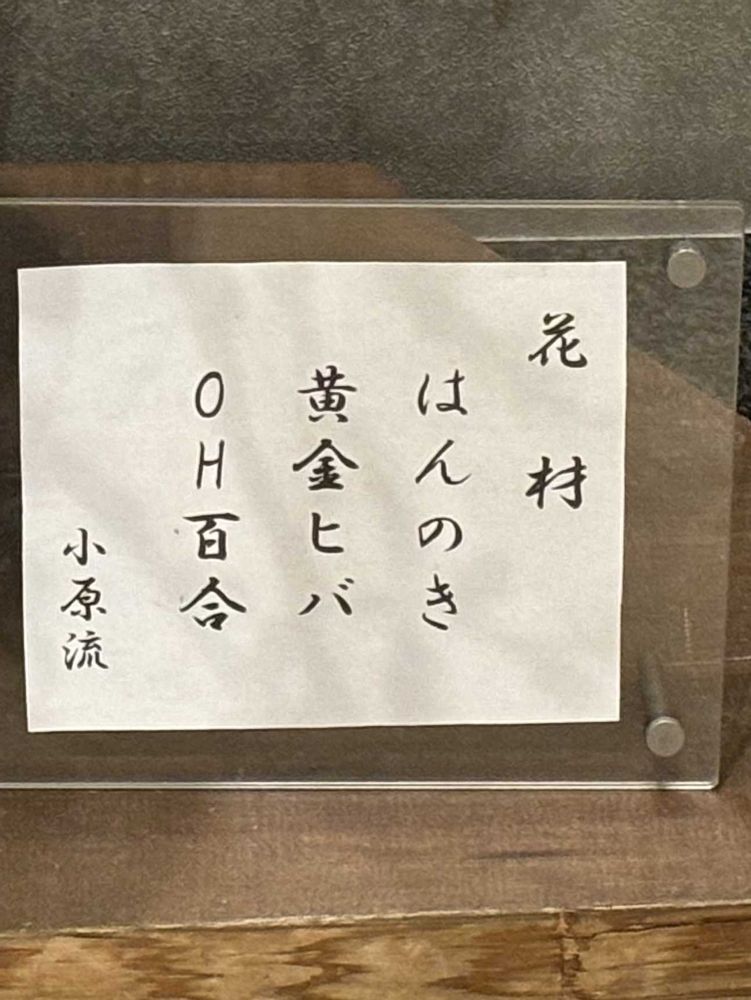 花材
はんのき
黄金ヒバ
OH百合
小原流